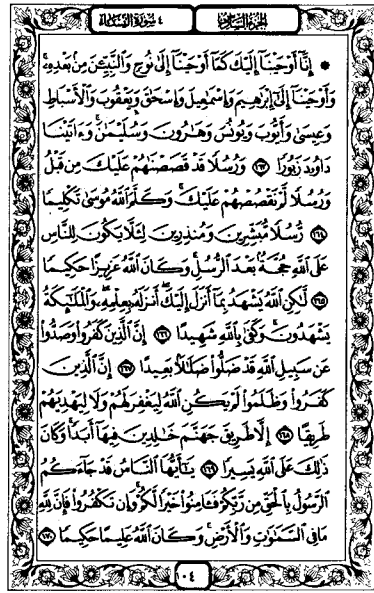 الجزء السادس ٤ سورة النساء
۞ إِنَّآ أَوْحَيْنَآ إِلَيْكَ كَمَآ أَوْحَيْنَآ إِلَىٰ نُوحٍ وَٱلنَّبِيِّـۧنَ مِنۢ بَعْدِهِۦۚ
وَأَوْحَيْنَآ إِلَىٰٓ إِبْرَٰهِيمَ وَإِسْمَٰعِيلَ وَإِسْحَٰقَ وَيَعْقُوبَ وَٱلْأَسْبَاطِ
وَعِيسَىٰ وَأَيُّوبَ وَيُونُسَ وَهَٰرُونَ وَسُلَيْمَٰنَۚ وَءَاتَيْنَا
دَاوُۥدَ زَبُورًا ١٦٣ وَرُسُلًا قَدْ قَصَصْنَٰهُمْ عَلَيْكَ مِن قَبْلُ
وَرُسُلًا لَّمْ نَقْصُصْهُمْ عَلَيْكَۚ وَكَلَّمَ ٱللَّهُ مُوسَىٰ تَكْلِيمًا
١٦٤ رُّسُلًا مُّبَشِّرِينَ وَمُنذِرِينَ لِئَلَّا يَكُونَ لِلنَّاسِ
عَلَى ٱللَّهِ حُجَّةٌۢ بَعْدَ ٱلرُّسُلِۚ وَكَانَ ٱللَّهُ عَزِيزًا حَكِيمًا
١٦٥ لَّٰكِنِ ٱللَّهُ يَشْهَدُ بِمَآ أَنزَلَ إِلَيْكَۖ أَنزَلَهُۥ بِعِلْمِهِۦۖ وَٱلْمَلَٰٓئِكَةُ
يَشْهَدُونَۚ وَكَفَىٰ بِٱللَّهِ شَهِيدًا ١٦٦ إِنَّ ٱلَّذِينَ كَفَرُوا۟ وَصَدُّوا۟
عَن سَبِيلِ ٱللَّهِ قَدْ ضَلُّوا۟ ضَلَٰلًۢا بَعِيدًا ١٦٧ إِنَّ ٱلَّذِينَ
كَفَرُوا۟ وَظَلَمُوا۟ لَمْ يَكُنِ ٱللَّهُ لِيَغْفِرَ لَهُمْ وَلَا لِيَهْدِيَهُمْ
طَرِيقًا ١٦٨ إِلَّا طَرِيقَ جَهَنَّمَ خَٰلِدِينَ فِيهَآ أَبَدًاۚ وَكَانَ
ذَٰلِكَ عَلَى ٱللَّهِ يَسِيرًا ١٦٩ يَٰٓأَيُّهَا ٱلنَّاسُ قَدْ جَآءَكُمُ
ٱلرَّسُولُ بِٱلْحَقِّ مِن رَّبِّكُمْ فَـَٔامِنُوا۟ خَيْرًا لَّكُمْۚ وَإِن تَكْفُرُوا۟ فَإِنَّ لِلَّهِ
مَا فِى ٱلسَّمَٰوَٰتِ وَٱلْأَرْضِۚ وَكَانَ ٱللَّهُ عَلِيمًا حَكِيمًا ١٧٠
١٠٤